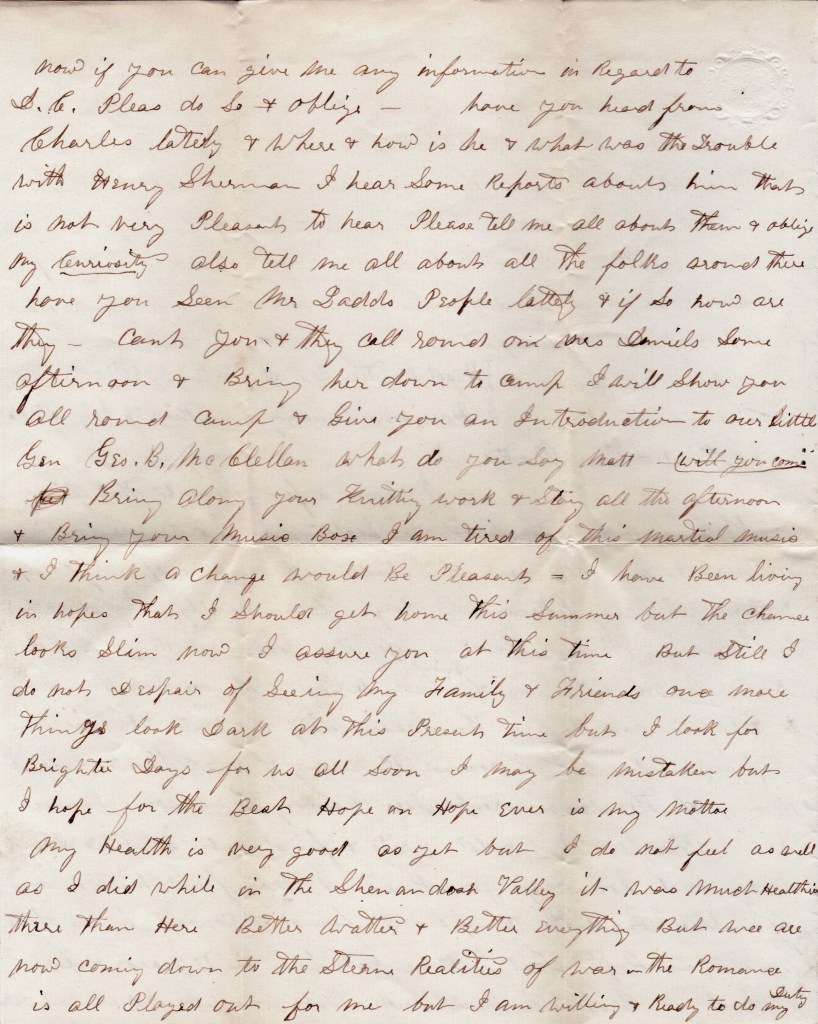 now if you can give me any information in Regard to
D. C. Pleas do So & oblige — have you heard from
Charles lately & where & how is he & what was the Trouble
with Henry Sherman I hear Some Reports about him that
is not very Pleasant to hear Please tell me all about them & oblige
my Curiosity also tell me all about all the folks around there
have you Seen Mr Ladds People lattely & if So how are
they — Cant you & they call round on mrs Daniels Some
afternoon & Bring her down to camp I will Show you
all round camp & Give you an Introduction to our little
Gen Geo. B. McClellan what do you Say Matt — will you come
Bring along your Knitting work & Stay all the afternoon
& Bring your Music Box I am tired of this martial music
& I think a change would Be Pleasant = I have Been living
in hopes that I Should get home this Summer but the chance
looks Slim now I assure you at this time But Still I
do not Despair of Seeing my Family & Friends once more
things look Dark at this Present time but I look for
Brighter Days for us all Soon I may be mistaken but
I hope for the Best Hope on Hope Ever is my mottoe
My Health is very good as yet but I do not feel as well
as I did while in the Shenandoah Valley it was Much Healthier
there than Here Better Watter & Better Everything But wee are
now coming down to the Sterne Realities of war — the Romance
is all Played out for me but I am willing & Ready to do my Duty